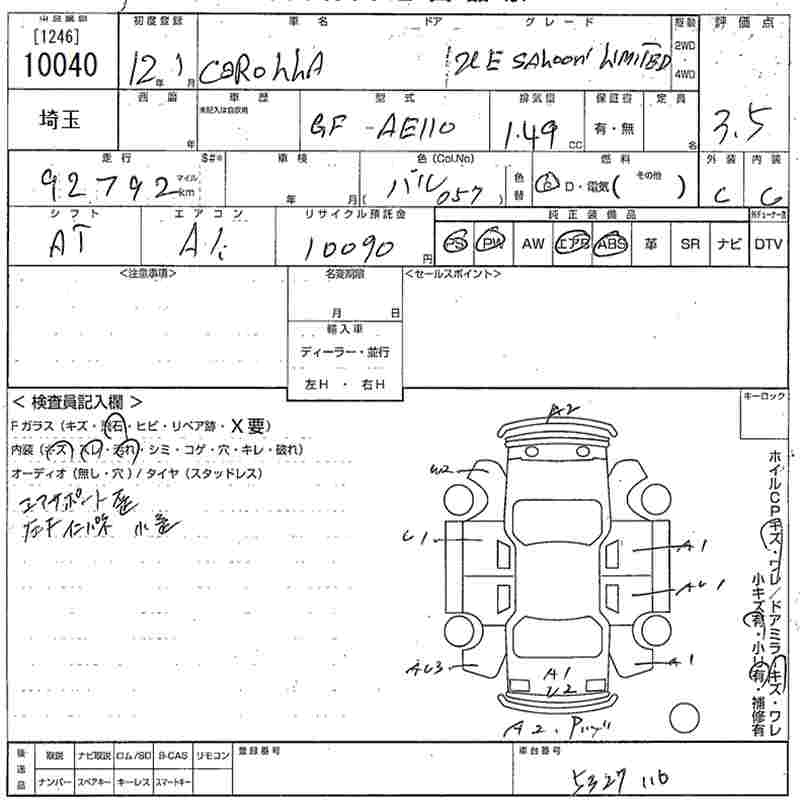 [1246]
10040
初度登録 車名 ドア グレード 評価点
12年 1月 COROLLA XE SALOON LIMITED 2WD 4WD
3.5
埼玉
車歴 型式 排気量 保証書 定員
未記入は自家用
年 GF-AE110 1.49 CC 有・無 名
走行 $#* 車検 色(Col.No) 燃料 外装 内装
92792 マイル km 年 月 パール 057 色替 G D・電気( その他 ) C C
シフト エアコン リサイクル預託金 純正装備品
AT A/C 10090円 PS PW AW エアB ABS 革 SR ナビ DTV
<注意事項> 名変期限 <セールスポイント>
月 日
輸入車
ディーラー・並行
左H・右H
<検査員記入欄> キーロック
Fガラス(キズ・飛石・ヒビ・リペア跡・X要)
内装(キズ・スレ・汚れ・シミ・コゲ・穴・キレ・破れ)
オーディオ(無し・穴)/タイヤ(スタッドレス)
コアサポート歪
小歪
A2
U2
U1
A1
AU1
AU3
A1
A1
U2
A2.
ホイルCPキズ・ワレ/ドアミラーキズ・ワレ
小キズ有・小凹有・補修有
後送品 取説 ナビ取説 ロム/SD B-CAS リモコン 登録番号 車台番号
ナンバー スペアキー キーレス スマートキー
5327116